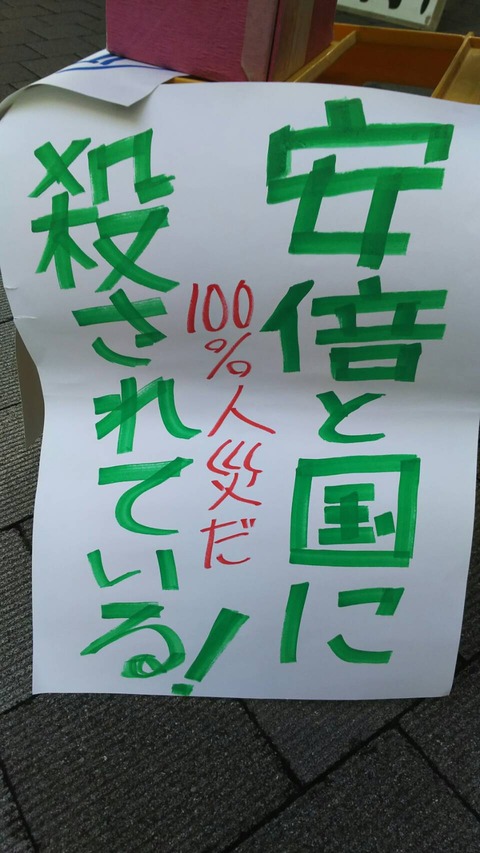 安倍と国に
100%人災だ
殺されている!